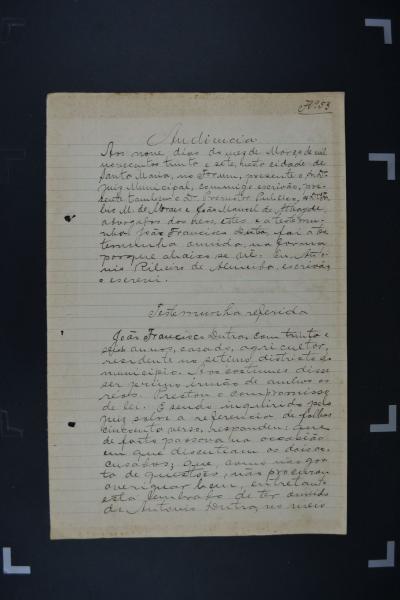 Nº 53
Audiencia
Aos nove dias do mes de Março de mil
novecentos trinta e sete, nesta cidade de
Santa Maria, no Forum, presente o Dr.
Juis Municipal, commigo escrivão, pre-
sente tambem o Dr. Promotor Publico,
M. de Moraes e João Manoel de
advogados dos réos, estes e a testemu-
nha João Francisco Dutra, foi a tes-
temunha ouvida, na forma
porque abaixo se vê. Eu, Anto-
nio Ribeiro de Almeida, escrivão
o escrevi.
Testemunha referida
João Francisco Dutra, com trinta e
annos, casado, agricultor,
residente no setimo districto do
municipio. Aos costumes disse
ser primo irmão de ambos os
reos. Prestou o compromisso
de lei. E sendo inquirido pelo
juis sobre a referencia de folhas
cincoenta verso, respondeu: Que
de facto passava na occasião
em que discutiam os dois ac-
cusados; que, como não gos-
ta de questões, não procurou
averiguar bem, entretanto
está lembrado de ter ouvido
de Antonio Dutra, no meio